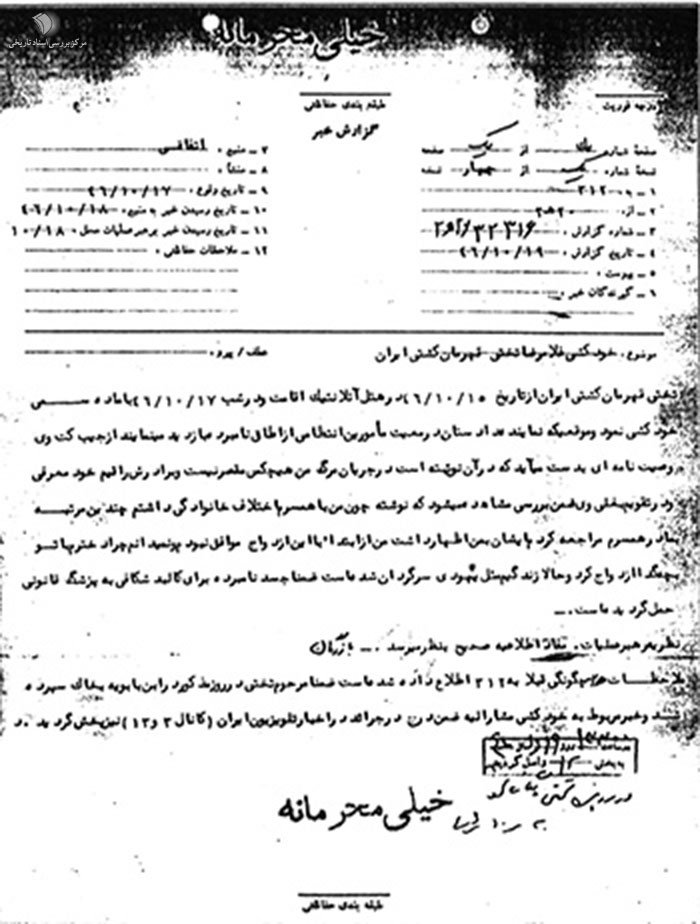 مرکز بررسی اسناد تاریخی
خیلی محرمانه
درجه فوریت
طبقه بندی حفاظتی
گزارش خبر
صفحهٔ شماره یک از یک صفحه
نسخهٔ شماره یک از چهار نسخه
۱ ـ به ۳۱۲
۲ ـ از، ۲۰ه۲۰
۳ ـ شماره گزارش ۳۲۳۱۶/۲۰ه۲۰
۴ ـ تاریخ گزارش ۴۶/۱۰/۱۹
۵ ـ پیوست
۶ ـ گیرندگان خبر
۷ ـ منبع، اتفاقی
۸ ـ منشأ
۹ ـ تاریخ وقوع، ۴۶/۱۰/۱۷
۱۰ ـ تاریخ رسیدن خبر به منبع، ۴۶/۱۰/۱۸
۱۱ ـ تاریخ رسیدن خبر به رهبر عملیات محل ۱۰/۱۸
۱۲ ـ ملاحظات حفاظتی
موضوع، خودکشی غلامرضا تختی ـ قهرمان کشتی ایران
عطف / پیرو
تختی قهرمان کشتی ایران از تاریخ ۴۶/۱۰/۱۵ در هتل آتلانتیک اقامت و در شب ۴۶/۱۰/۱۷ با ماده سمی
خودکشی نمود و موقعیکه نماینده دادستان در معیت مأمورین انتظامی از اطاق نامبرده بازدید مینمایند از جیب کت وی
وصیت نامه ای بدست میآید که در آن نوشته است در جریان مرگ من هیچکس مقصر نیست و برادرش را قیم خود معرفی
و در تقویم بغلی وی ضمن بررسی مشاهده میشود که نوشته چون من با همسرم اختلاف خانوادگی داشتم چندین مرتبه
بمادر همسرم مراجعه کردم ایشان بمن اظهار داشت من از ابتدا با این ازدواج موافق نبودم و نمیدانم چرا دخترم با تو
بچه گدا ازدواج کرد و حالا زندگیم مثل یهودی سرگردان شده است ضمناً جسد نامبرده برای کالبد شکافی به پزشگ قانونی
حمل گردیده است.ـ
نظریه رهبر عملیات، مفاد اطلاعیه صحیح بنظر میرسد.ـ
ملاحظات چگونگی قبلا به ۳۱۲ اطلاع داده شده است ضمناً مرحوم تختی در روز مذکور در ابن بابویه بخاک سپرده
شد و خبر مربوط به خودکشی مشارالیه ضمن درج در جرائد در اخبار تلویزیون ایران (کانال ۳ و ۱۳) نیز پخش گردید.
خیلی محرمانه
طبقه بندی حفاظتی